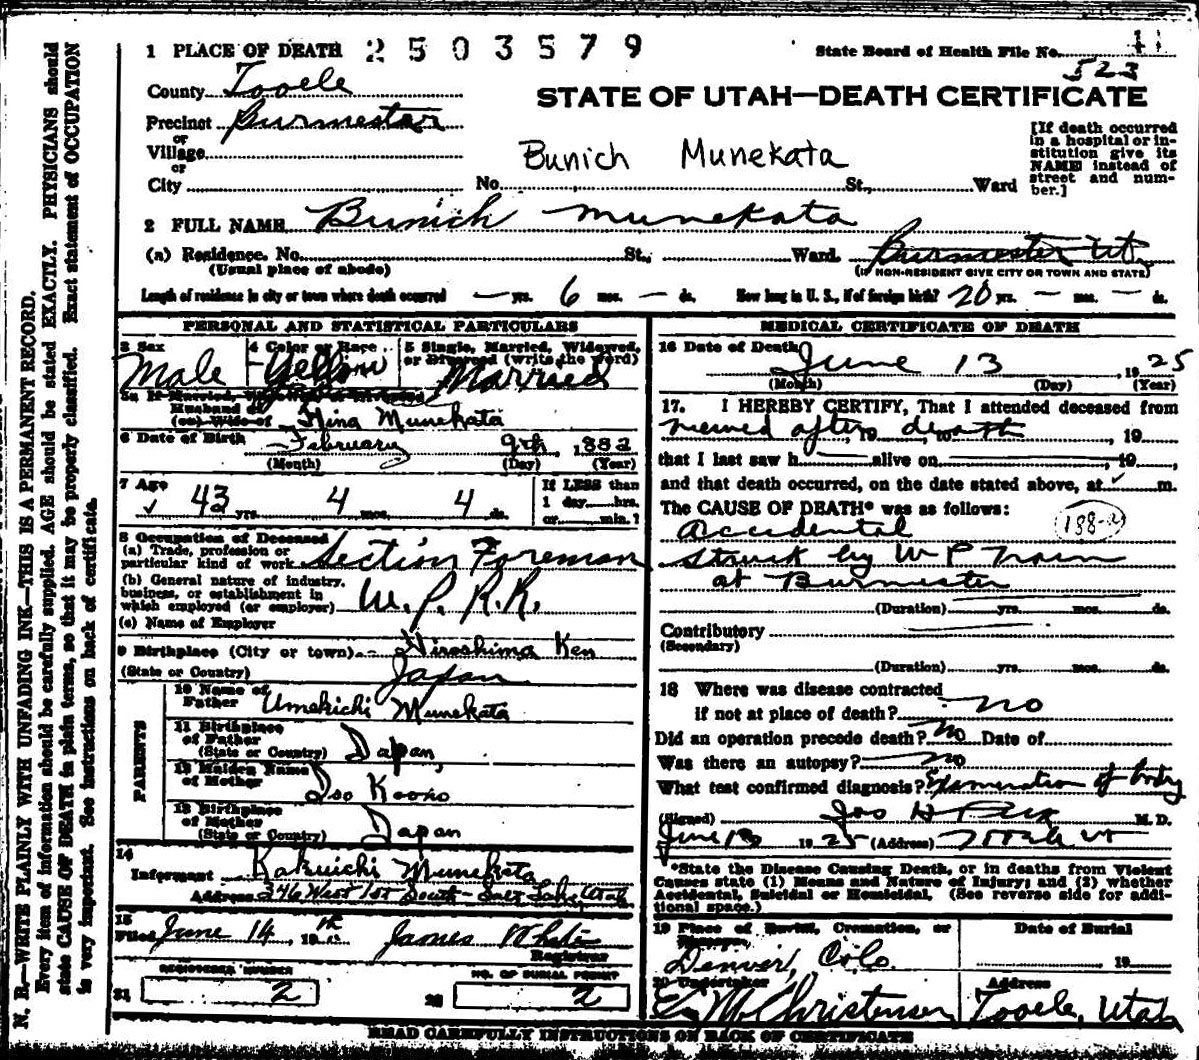 1 PLACE OF DEATH 2503579
State Board of Health File No. 11
523
County Tooele
STATE OF UTAH—DEATH CERTIFICATE
Precinct Burmester
or
Village
or
City
Bunich Munekata
No. St., Ward
[If death occurred
in a hospital or in-
stitution give its
NAME instead of
street and num-
ber.]
2 FULL NAME Bunich Munekata
(a) Residence. No. St., Ward. Burmester Ut.
(Usual place of abode)
(If NON-RESIDENT GIVE CITY OR TOWN AND STATE)
Length of residence in city or town where death occurred — yrs. 6 mos. — ds. How long in U. S., if of foreign birth? 20 yrs. — mos. — ds.
PERSONAL AND STATISTICAL PARTICULARS
3 Sex
Male
4 Color or Race
Yellow
5 Single, Married, Widowed,
or Divorced (write the word)
Married
5a If Married, Widowed or Divorced
Husband of
(or) Wife of
Munekata
6 Date of Birth February 9th, 1882
(Month) (Day) (Year)
7 Age
43 yrs. 4 mos. 4 ds.
If LESS than
1 day hrs.
or min.?
8 Occupation of Deceased
(a) Trade, profession or
particular kind of work Section Foreman
(b) General nature of industry,
business, or establishment in
which employed (or employer) W. P. R.R.
(c) Name of Employer
9 Birthplace (City or town) Hiroshima Ken
(State or Country) Japan
PARENTS
10 Name of
Father Umekichi Munekata
11 Birthplace
of Father
(State or Country) Japan,
12 Maiden Name
of Mother
13 Birthplace
of Mother
(State or Country) Japan
14
Informant Kakuichi Munekata
Address 346 West 1st South - Salt Lake, Utah
15
Filed June 14th, 19
James White
Registrar
REGISTERED NUMBER
21 2
NO. OF BURIAL PERMIT
22 2
MEDICAL CERTIFICATE OF DEATH
16 Date of Death June 13 1925
(Month) (Day) (Year)
17. I HEREBY CERTIFY, That I attended deceased from
viewed after death, 19 , to , 19
that I last saw h alive on , 19 ,
and that death occurred, on the date stated above, at m.
The CAUSE OF DEATH* was as follows:
188-a
Accidental
Struck by W P Train
at Burmester
(Duration) yrs. mos. ds.
Contributory
(Secondary)
(Duration) yrs. mos. ds.
18 Where was disease contracted
if not at place of death? no
Did an operation precede death? no Date of
Was there an autopsy? no
What test confirmed diagnosis? Examination of body
(Signed) Jos H Peck M. D.
June 13 1925 (Address) Tooele Ut
*State the Disease Causing Death, or in deaths from Violent
Causes state (1) Means and Nature of Injury; and (2) whether
Accidental, Suicidal or Homicidal. (See reverse side for addi-
tional space.)
19 Place of Burial, Cremation, or
Removal
Denver, Colo.
Date of Burial
19
20 Undertaker
E. M. Christensen
Address
Tooele, Utah
READ CAREFULLY INSTRUCTIONS ON BACK OF CERTIFICATE
N. B.—WRITE PLAINLY WITH UNFADING INK—THIS IS A PERMANENT RECORD.
Every item of information should be carefully supplied. AGE should be stated EXACTLY. PHYSICIANS should
state CAUSE OF DEATH in plain terms, so that it may be properly classified. Exact statement of OCCUPATION
is very important. See instructions on back of certificate.